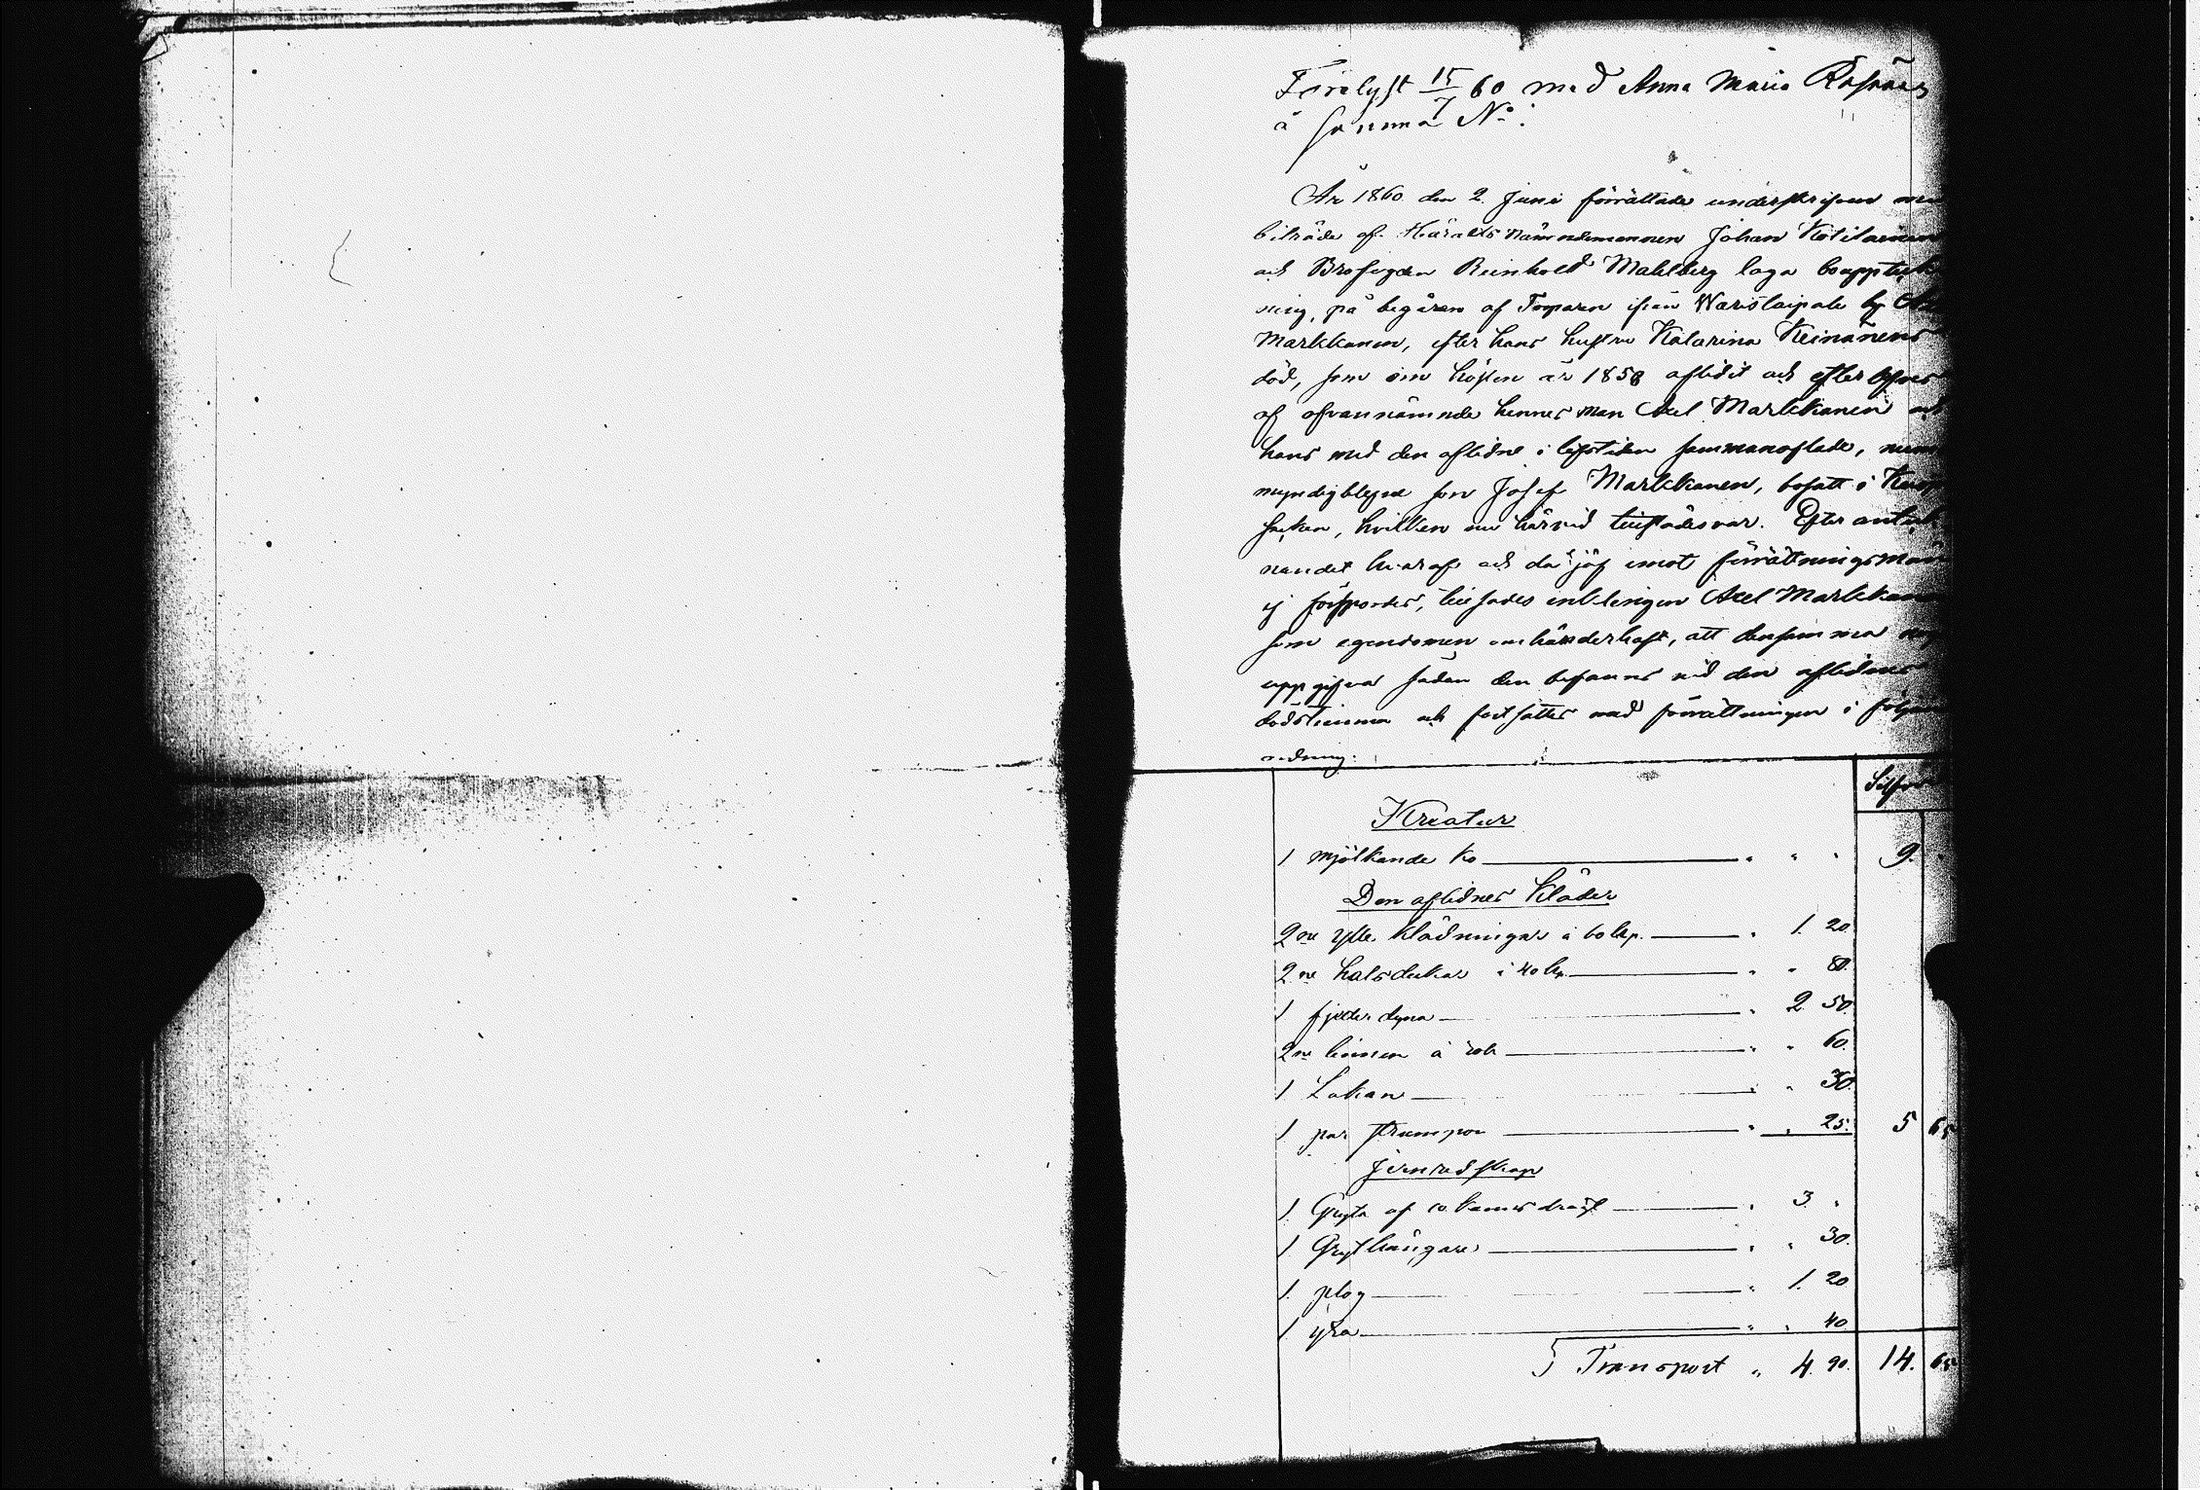 Förelyst 15/7 60 med Anna Maria
å samma No:
År 1860 den 2 Juni förrättade underskrifven
biträde af Häradts nämndemannen Johan Kotilainen
och Brofogden Reinhold Mahlberg laga bouppteck
ning, på begäran af Torparen ifrån Warislaipale by
Markkanen, efter hans hustru Katarina Keinänens
död, som om hösten år 1858 aflidit och efterlefves
af ofvannämnde hennes man Axel Markkanen och
hans med den aflidne i lifstiden sammanaflade,
myndigblefne son Josef Markkanen, bosatt i
socken, hvilken nu härvid tillstädes var. Efter anteck
nandet häraf och då jäf emot förrättningsmän
ej förspordes, tillsades enklingen Axel Markkanen
som egendomen omhänderhaft, att densamma
uppgifva sådan den befanns vid den aflidnes
dödstimma och fortsattes med förrättningen i följande
ordning:
Silfver
Kreatur
1 mjölkande ko " " " 9. "
Den aflidnes Kläder
2ne ylle klädningar à 60 kop. " 1. 20.
2ne halsdukar à 40 kop. " " 80.
1 fjäderdyna " 2. 50.
2ne linnen à 30k " " 60.
1 Lakan " " 30.
1 par strumpor " " 25. 5 65
Jernredskap
1. Gryta af 10 kannors drägt " 3. "
1. Grythängare " " 30.
1. plog " 1. 20
1 yxa " " 40
Transport " 4. 90. 14. 65